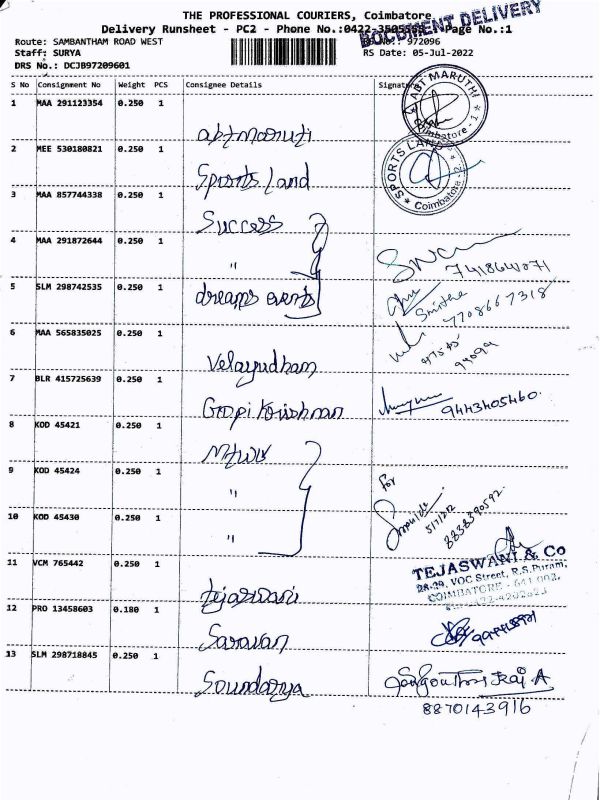 THE PROFESSIONAL COURIERS, Coimbatore
Delivery Runsheet - PC2 - Phone No.:0422- Page No.:1
DOCUMENT DELIVERY
Route: SAMBANTHAM ROAD WEST
972096
Staff: SURYA
RS Date: 05-Jul-2022
DRS No.: DCJB97209601
S No Consignment No Weight PCS Consignee Details Signature
1 MAA 291123354 0.250 1 abtmaruti
ABT MARUTHI Coimbatore - 1
2 MEE 530180821 0.250 1 Sports Land
SPORTS LAND Coimbatore
3 MAA 857744338 0.250 1 Success
4 MAA 291872644 0.250 1 "
5 SLM 298742535 0.250 1 dreams events
7708667318
6 MAA 565835025 0.250 1 Velayudham
7 BLR 415725639 0.250 1 Gopi Krishnan
9443405460
8 KOD 45421 0.250 1
9 KOD 45424 0.250 1 "
for
5/7/22
8838390592
10 KOD 45430 0.250 1 "
TEJASWANI & Co
28-29, VOC Street, R.S.Puram,
COIMBATORE - 641 002.
11 VCM 765442 0.250 1 tejaswani
12 PRO 13458603 0.180 1 Saravan
13 SLM 298718845 0.250 1 Soundarya
8870143916